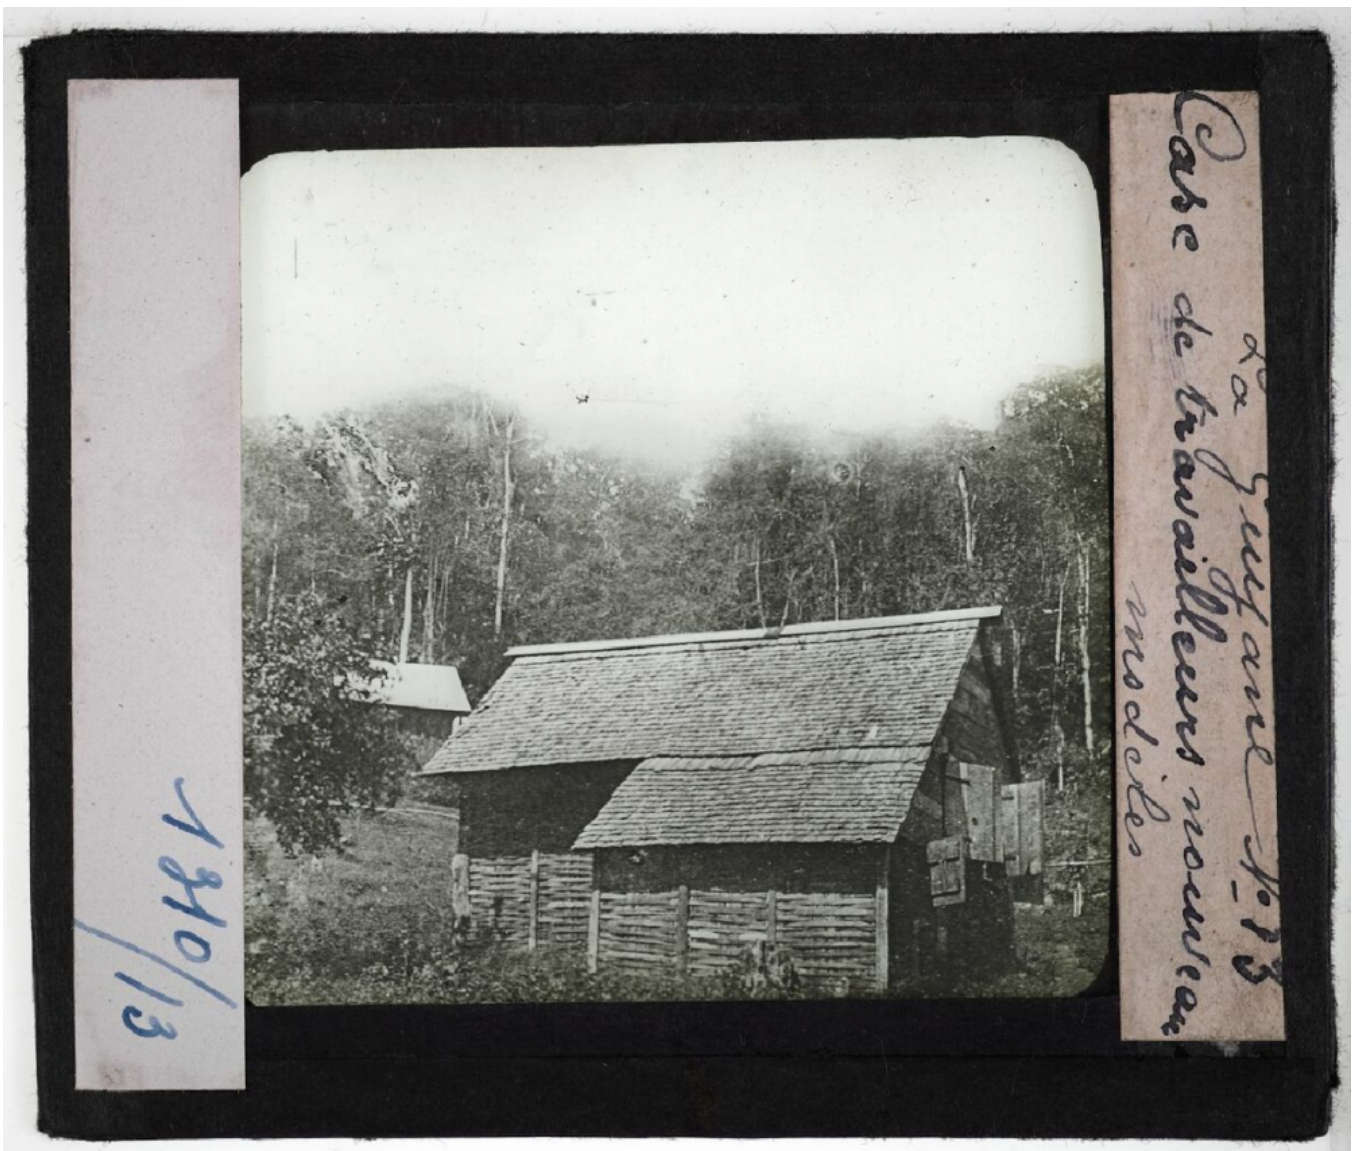 1340/13
La Guyane N° 13
Case de travailleurs nouveau
modèles